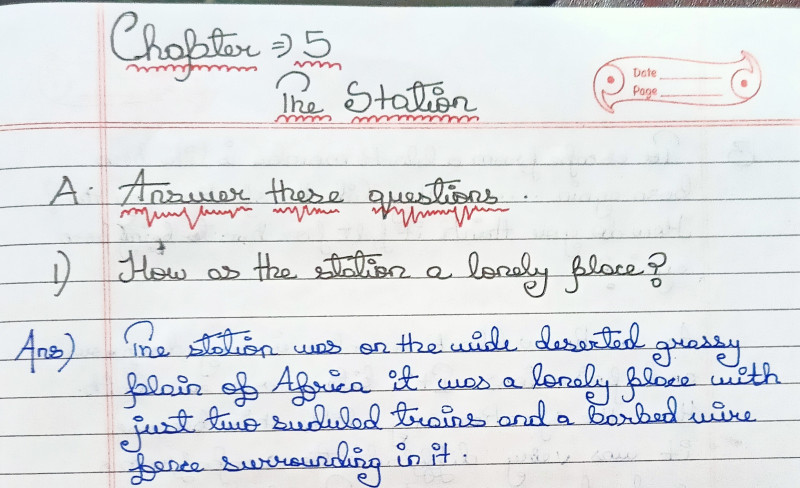 Chapter ⇒ 5
The Station
Date
Page
A. Answer these questions.
1) How as the station a lonely place?
Ans) The station was on the wide deserted grassy
plain of Africa it was a lonely place with
just two suduled trains and a barbed wire
fence surrounding in it.